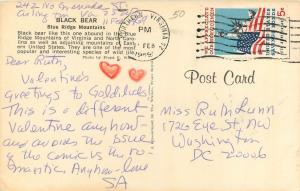 242 No Granada St
Arling Va
BLACK BEAR
Blue Ridge Mountains
Black bear like this one abound in the Blue
Ridge Mountains of Virginia and North Caro-
as well as adjoining mountains of
United States. They are one of the most
popular
PM
FEB
50
5c
Post Card
Dear Ruth,
Valentine's
Greetings to Goldilocks
This is a different
Valentine anyhow
and avoids the issue
of the comic vs the
omantics. Anyhow - love
SA
Miss Ruth Lunn
1726 Eye St, NW
Washington
DC 20006